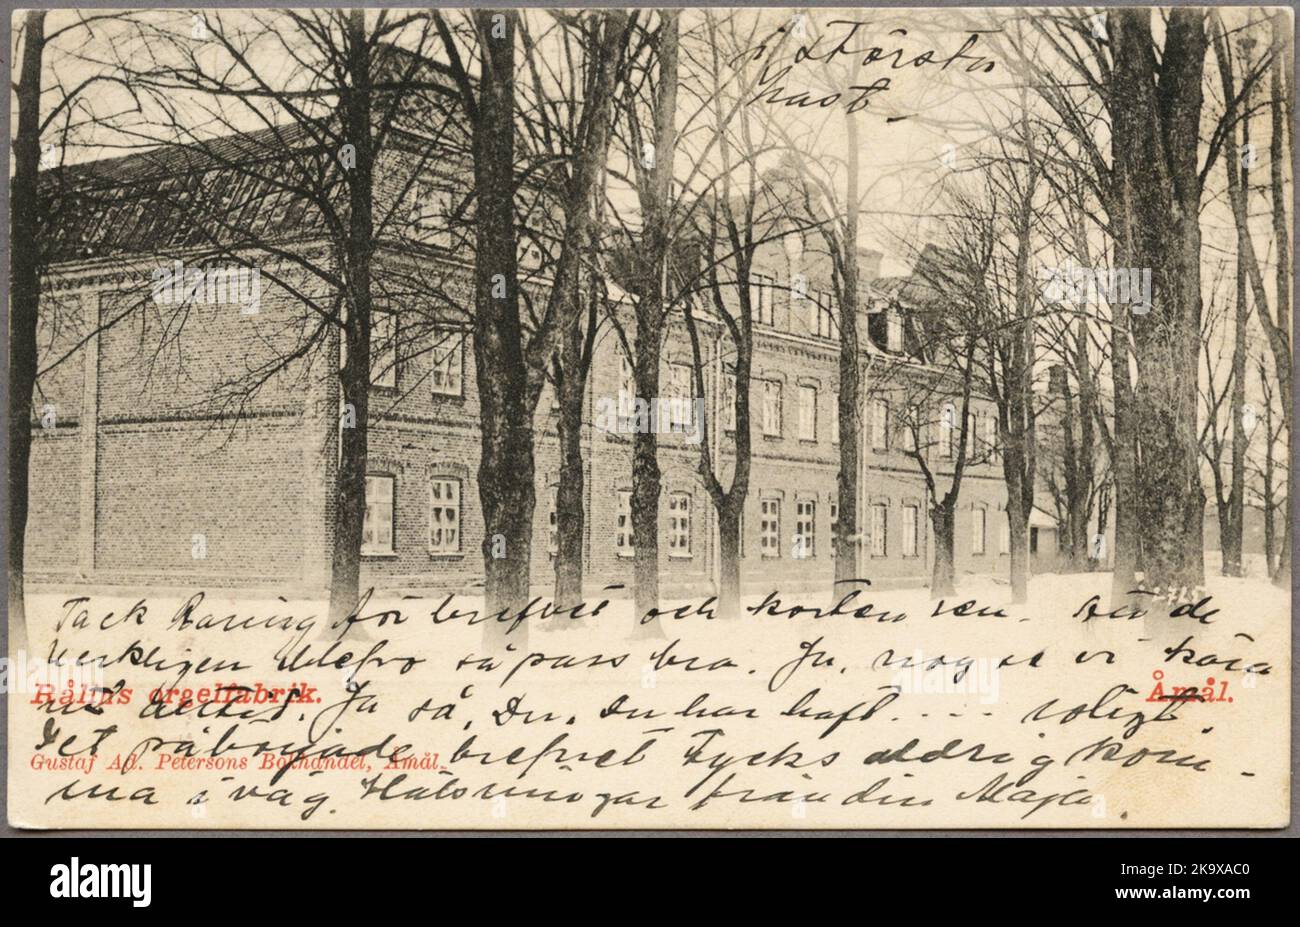 i största
hast
Tack Raring för brefvet och korten sen. Att de
verkligen blefvo så pass bra. Ja, nog är vi
Råling orgelfabrik.
Åmål.
Ja så, Du, Du har haft .... roligt.
Det påbörjade brefvet tycks aldrig kom-
Gustaf Ad. Petersons Bokhandel, Åmål.
ma i väg. Hälsningar från din Maja.
alamy
Image ID: 2K9XAC0
www.alamy.com